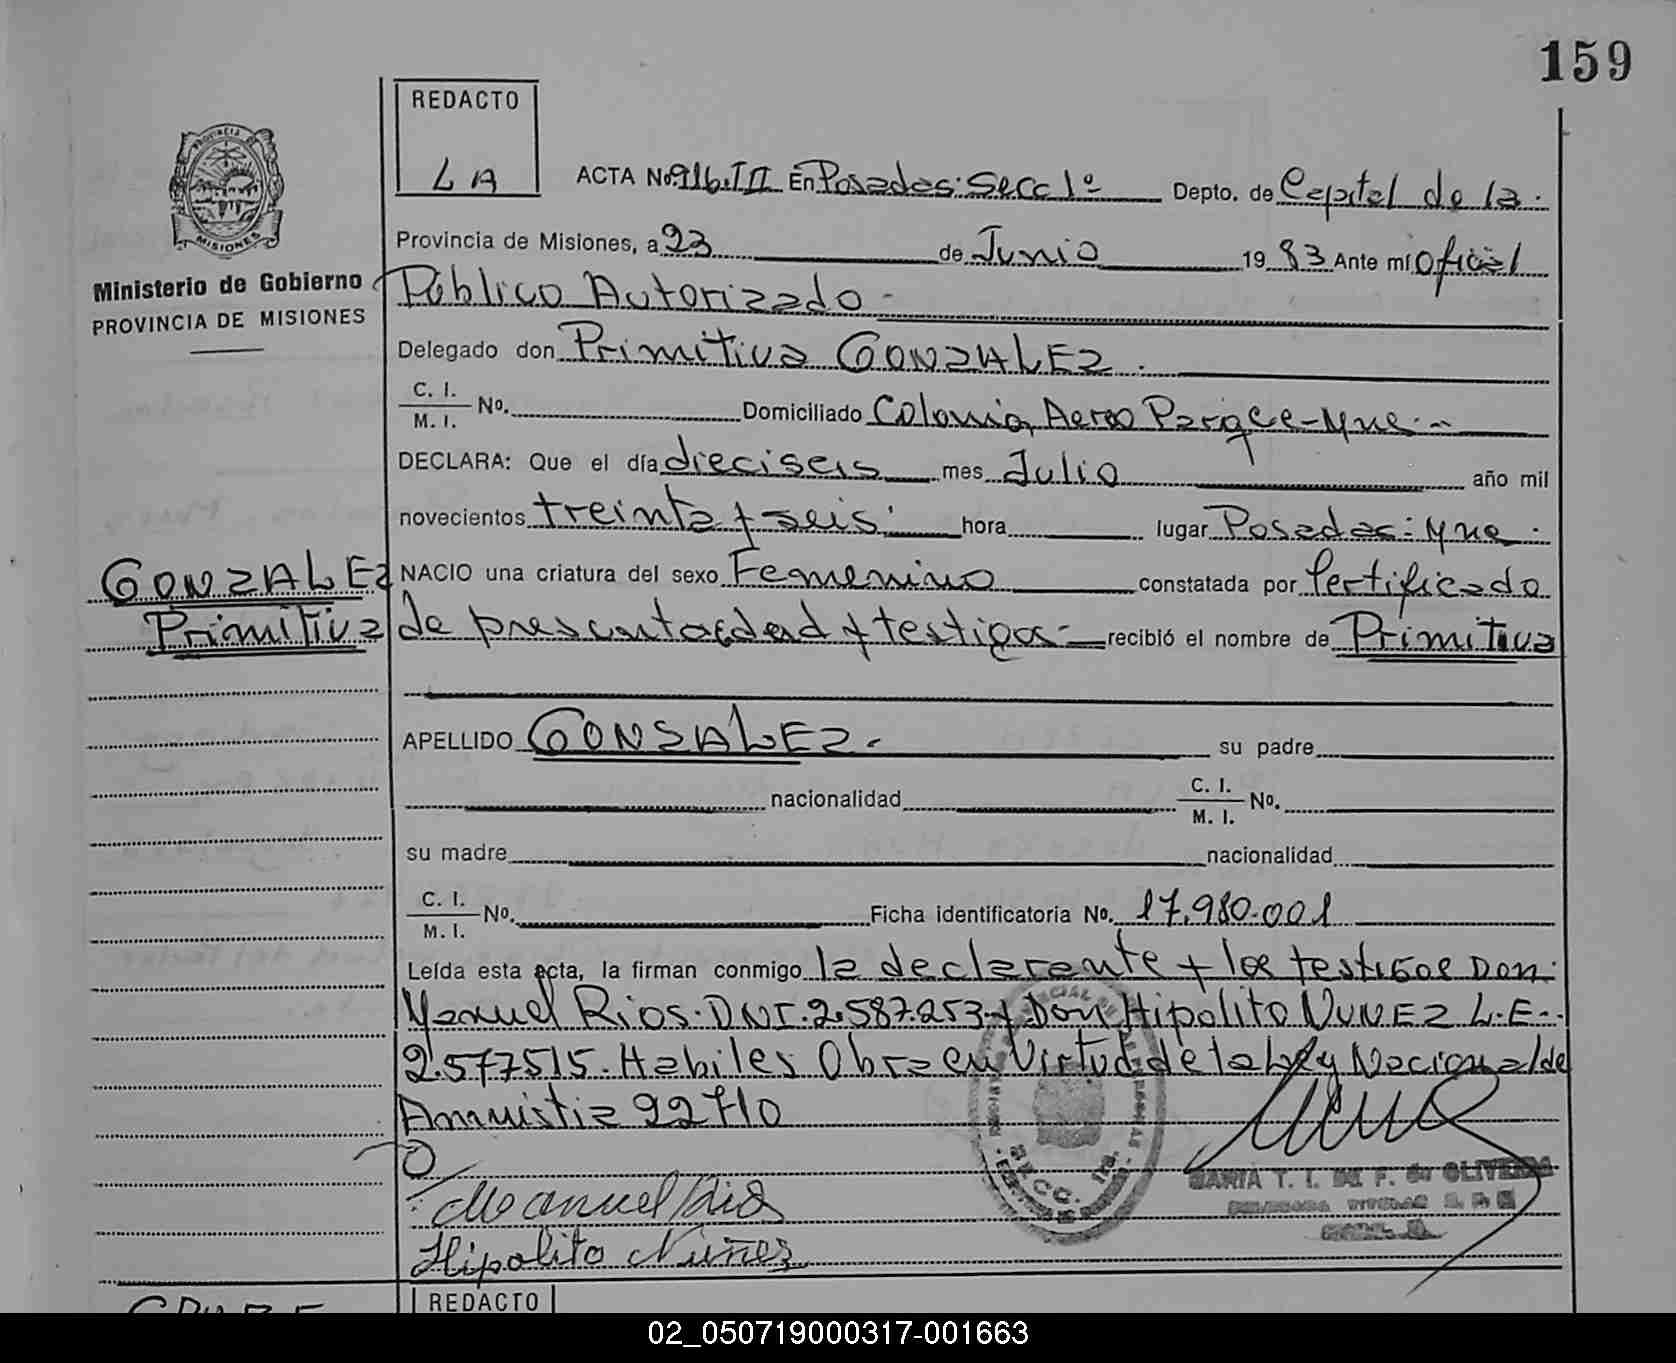 159
REDACTO
LA
ACTA No. 916.III En Posadas: Secc 1º Depto. de Capital de la.
Ministerio de Gobierno
PROVINCIA DE MISIONES
Provincia de Misiones, a 23 de Junio 1983 Ante mí Oficial
Público Autorizado
Delegado don Primitiva GONZALEZ.
C. I.
M. I. No. Domiciliado Colonia Aereo Parque-Mnes.
DECLARA: Que el día dieciseis mes Julio año mil
novecientos treinta y seis. hora lugar Posadas: Mnes.
GONZALEZ
Primitiva
NACIO una criatura del sexo Femenino constatada por Certificado
de presuntaedad y testigos- recibió el nombre de Primitiva
APELLIDO GONZALEZ. su padre
nacionalidad C. I.
M. I. No.
su madre nacionalidad
C. I.
M. I. No. Ficha identificatoria No. 17.980.001
Leída esta acta, la firman conmigo la declarante y los testigos Don:
Manuel Rios. DNI. 2.587.253 y Don Hipolito NUNEZ L.E.
2.577515. Habiles Obra en Virtud de la Ley Nacional de
Amnistia 22710
Manuel Rios
Hipolito Nuñez
SECC. 1ra.
MARIA T. I. DE F. de OLIVEIRA
DELEGADA TITULAR
REDACTO
02_050719000317-001663